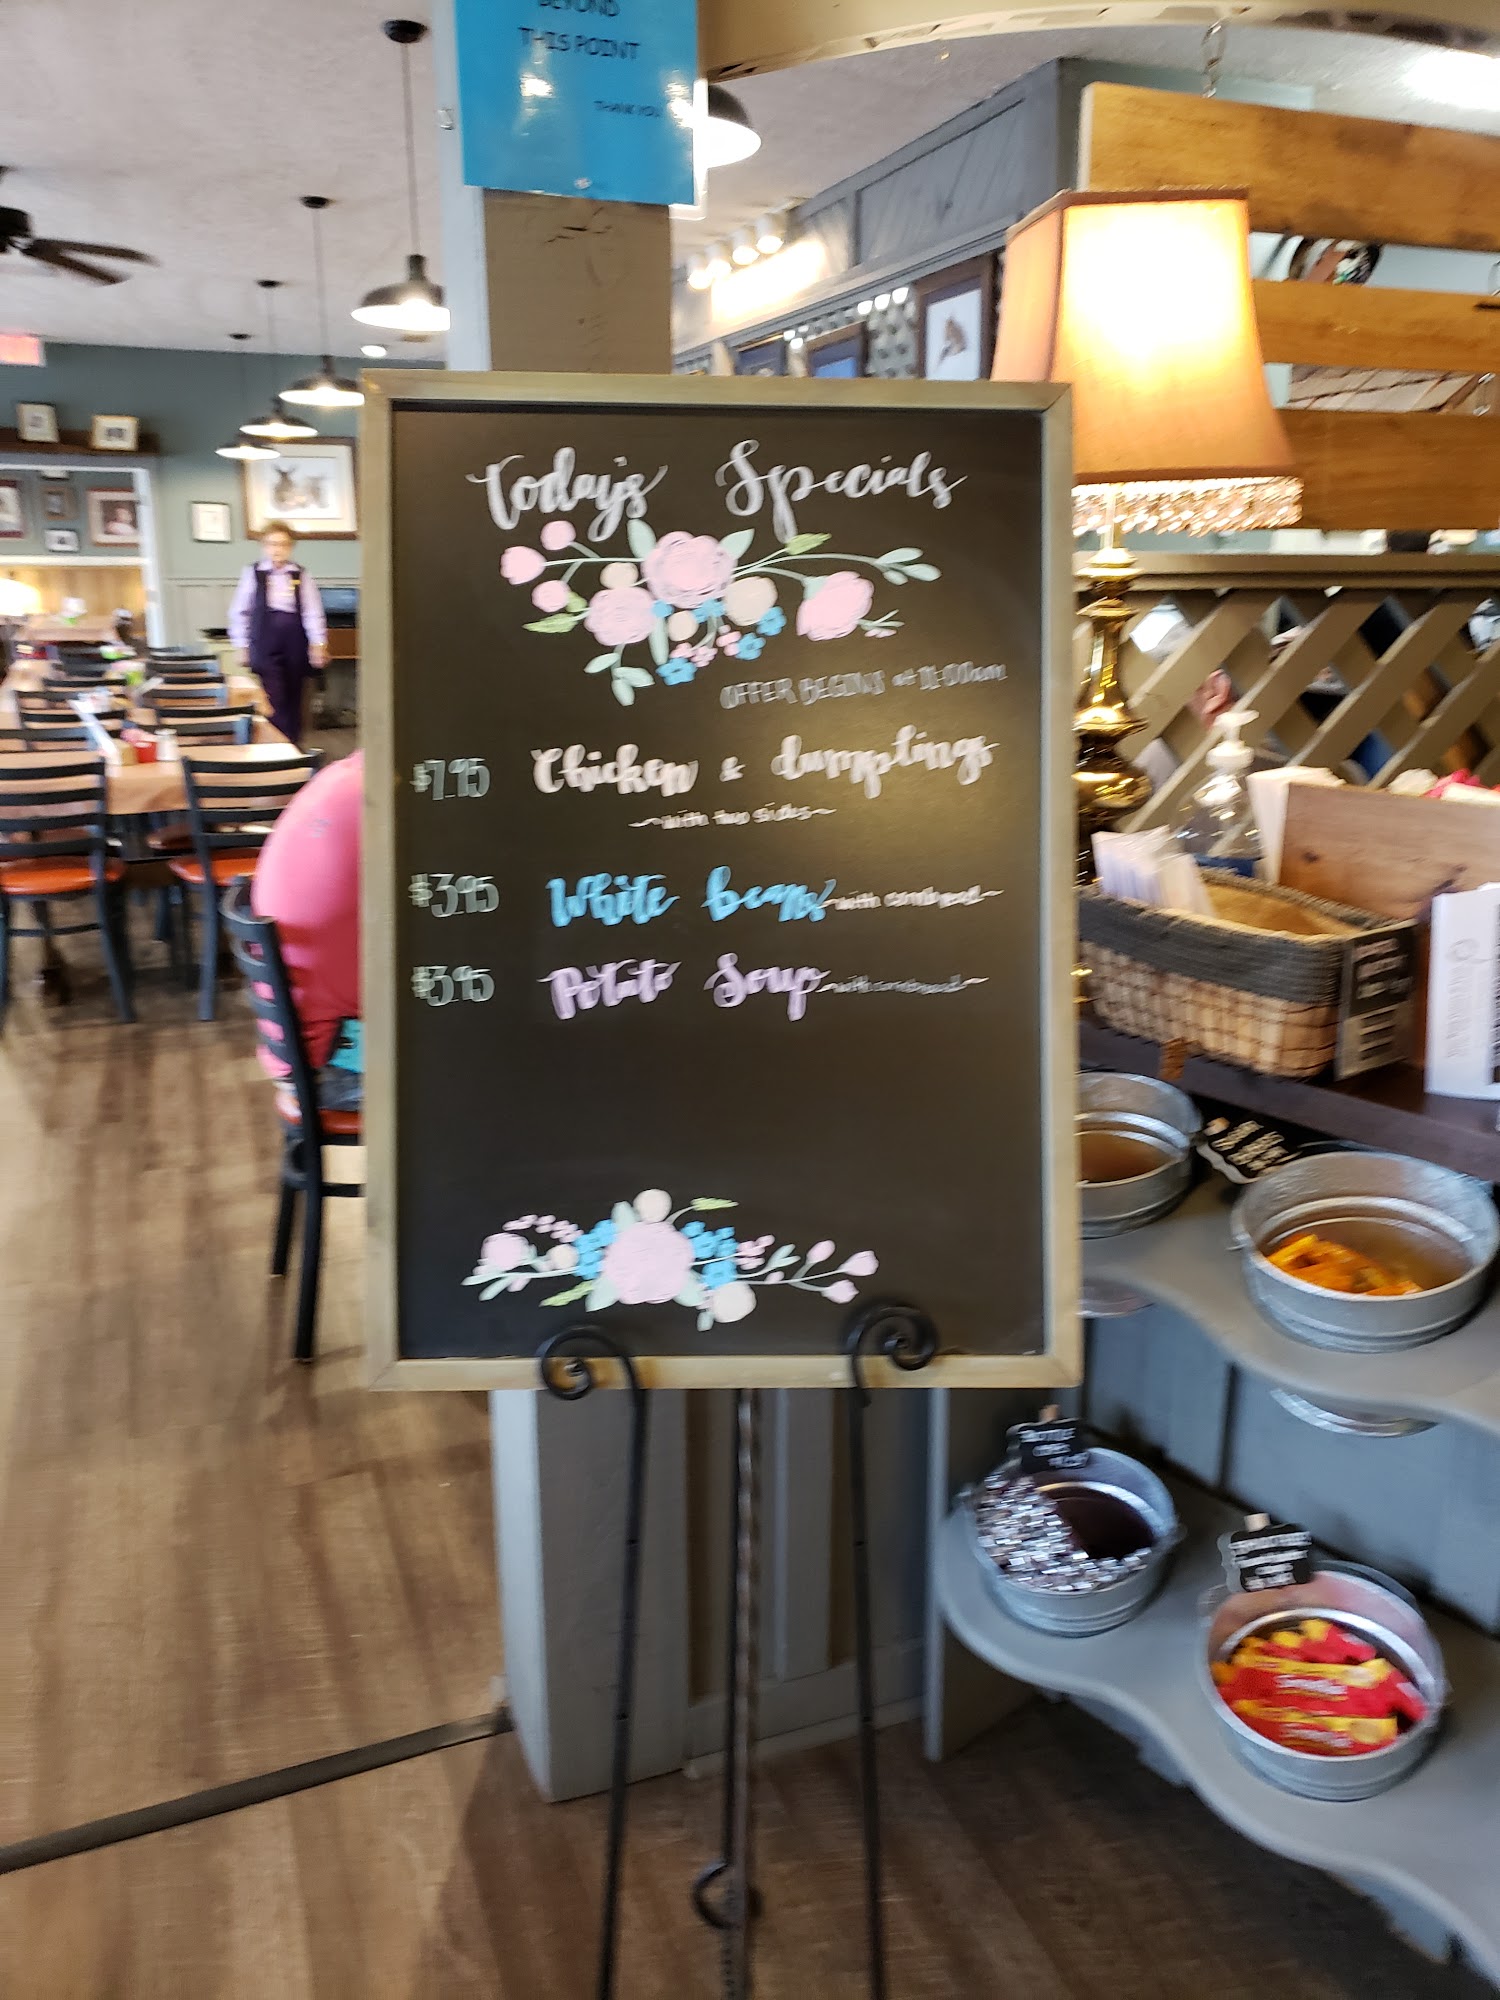 BEYOND
THIS POINT
THANK YOU
Today's Specials
OFFER BEGINS at 11:00am
$7.95 Chicken & dumplings
~with two sides~
$3.95 White beans ~with cornbread~
$3.95 Potato Soup ~with cornbread~